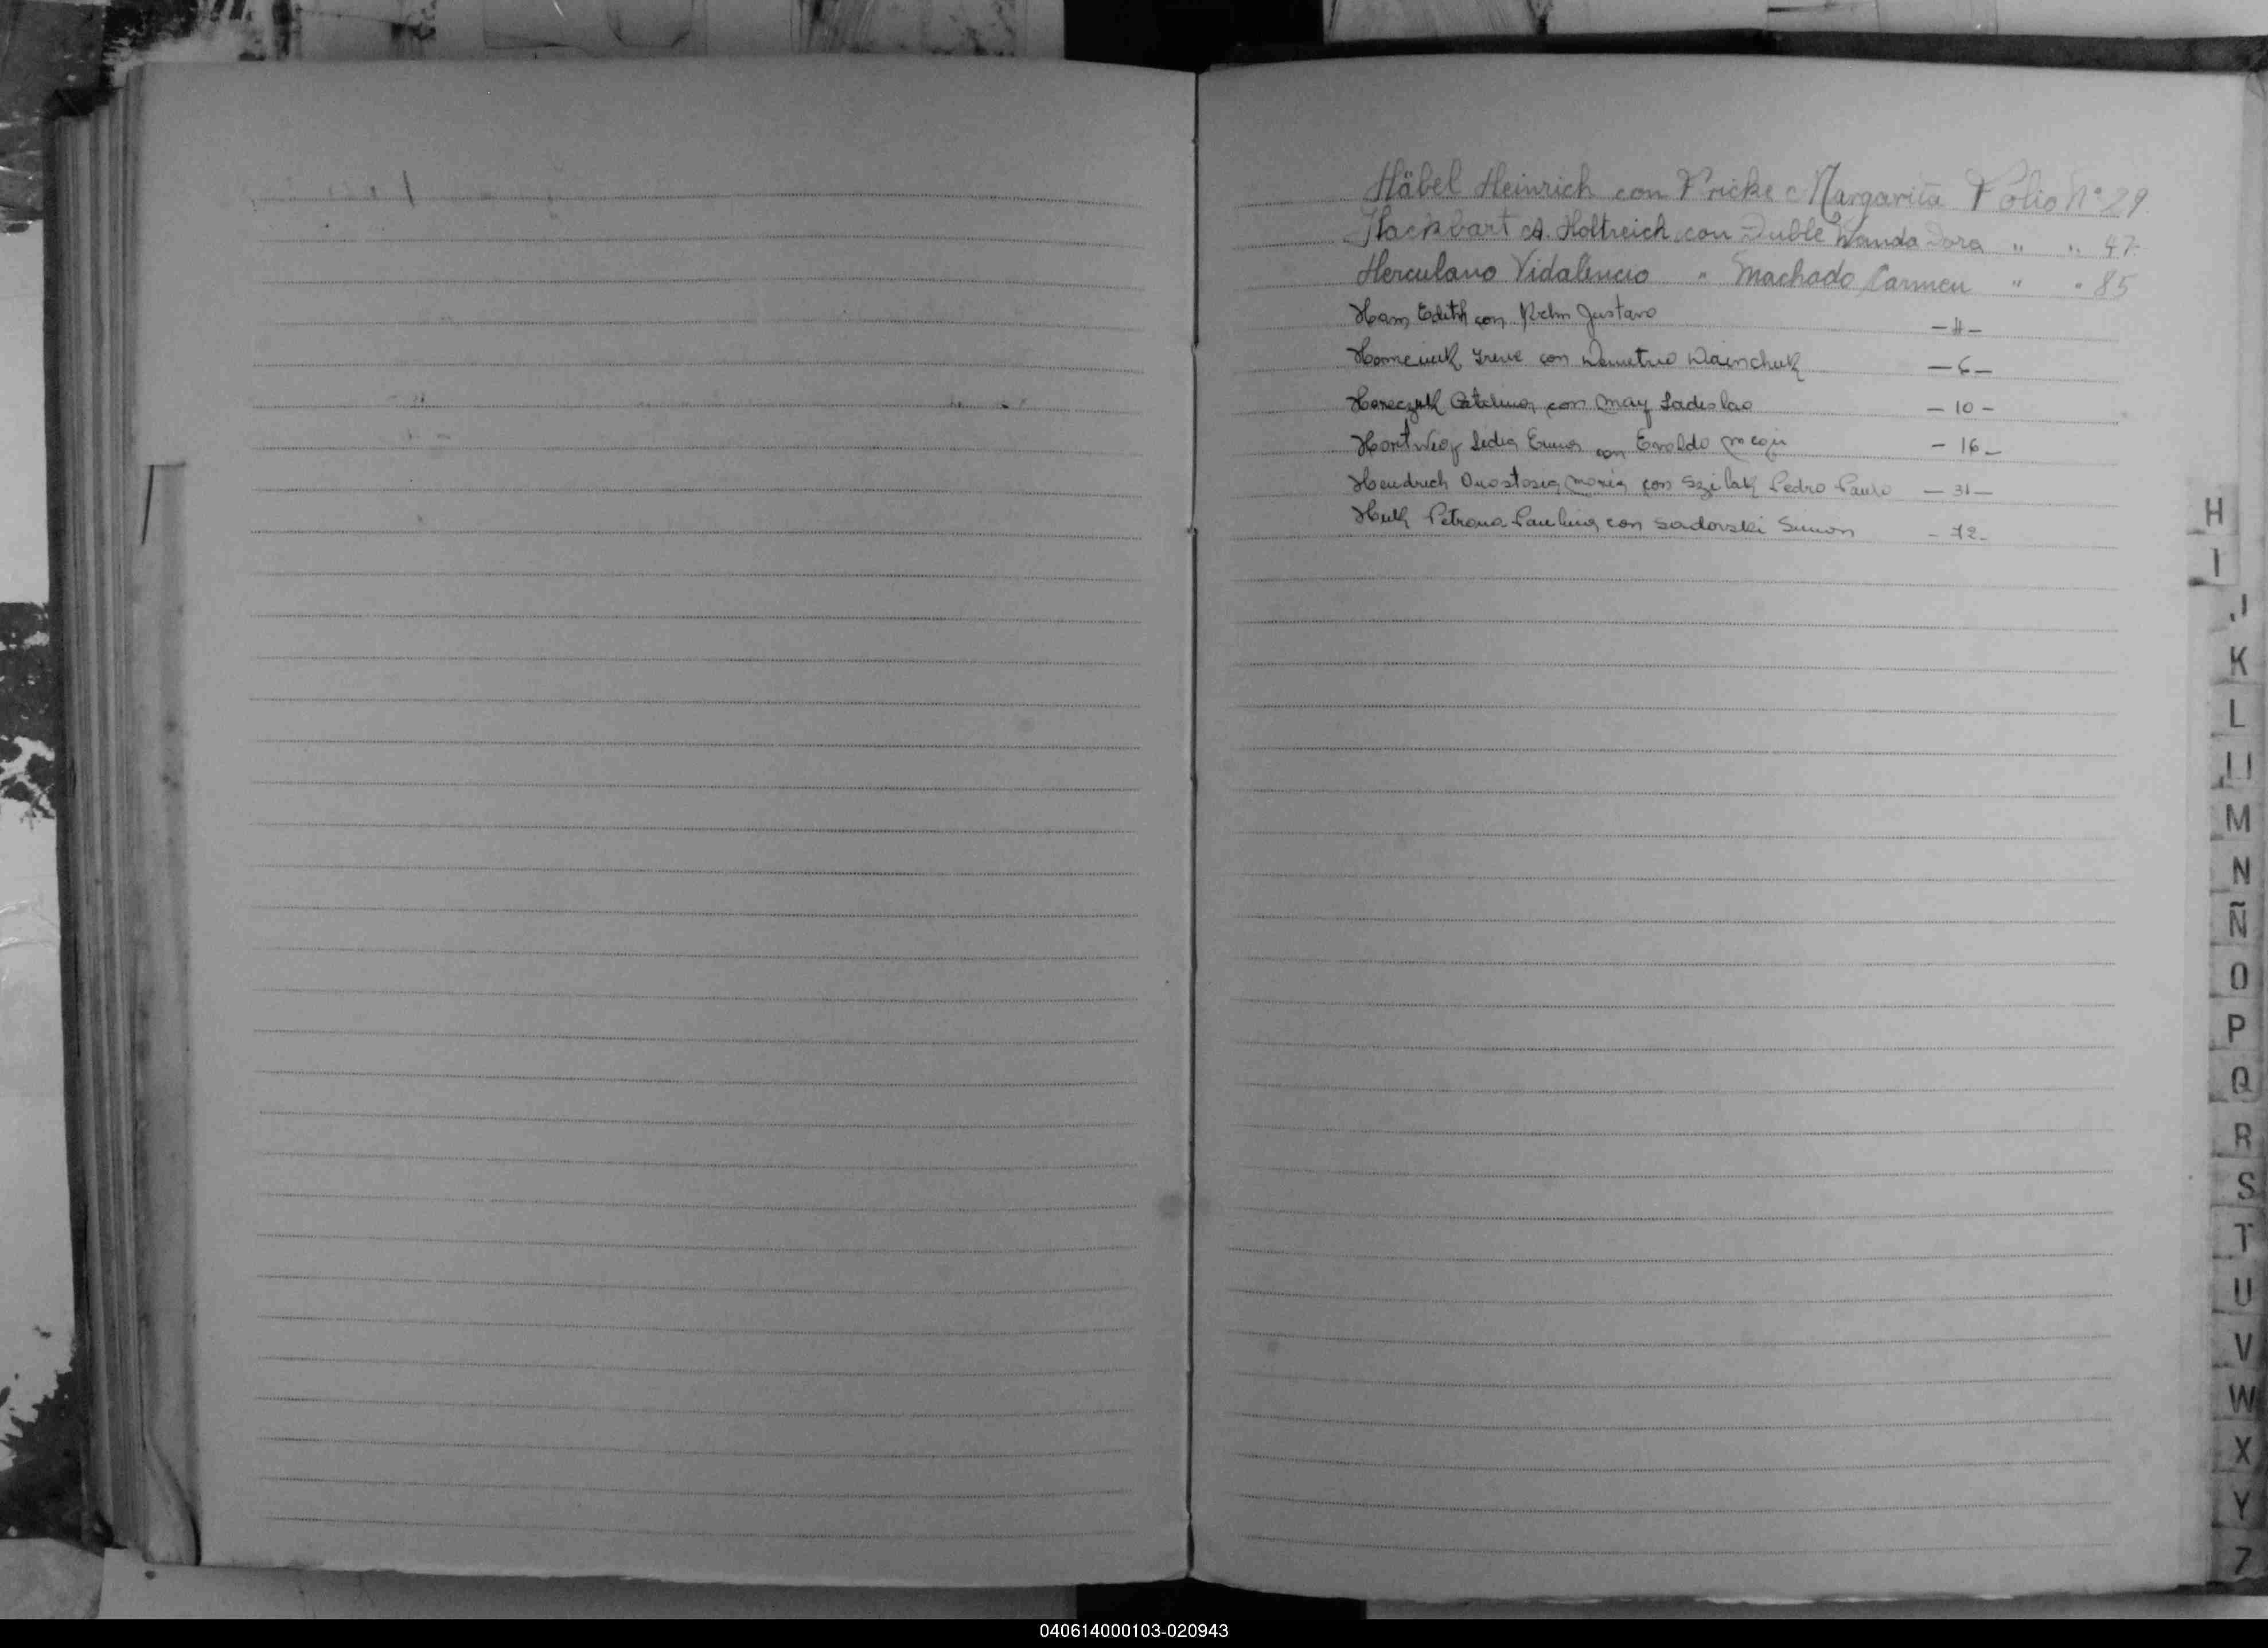 Häbel Heinrich con Fricke c Margarita Folio Nº 29.
Hackbart A. Holtreich con Duble Wanda Dora " " 47-
Herculano Vidalencio " Machado Carmen " " 85
Ham Edith con Rehm Gustavo -4-
Irene con Demetrio Wainchuk -6-
Catalina con May Ladislao - 10 -
Hartwig Ledia Erna con Evoldo - 16 -
Hendrich Anastasia Maria con Szilak Pedro Paulo - 31 -
Huk Petrona Paulina con Sadovski Simon - 72 -
H
I
J
K
L
LL
M
N
Ñ
O
P
Q
R
S
T
U
V
W
X
Y
Z
040614000103-020943